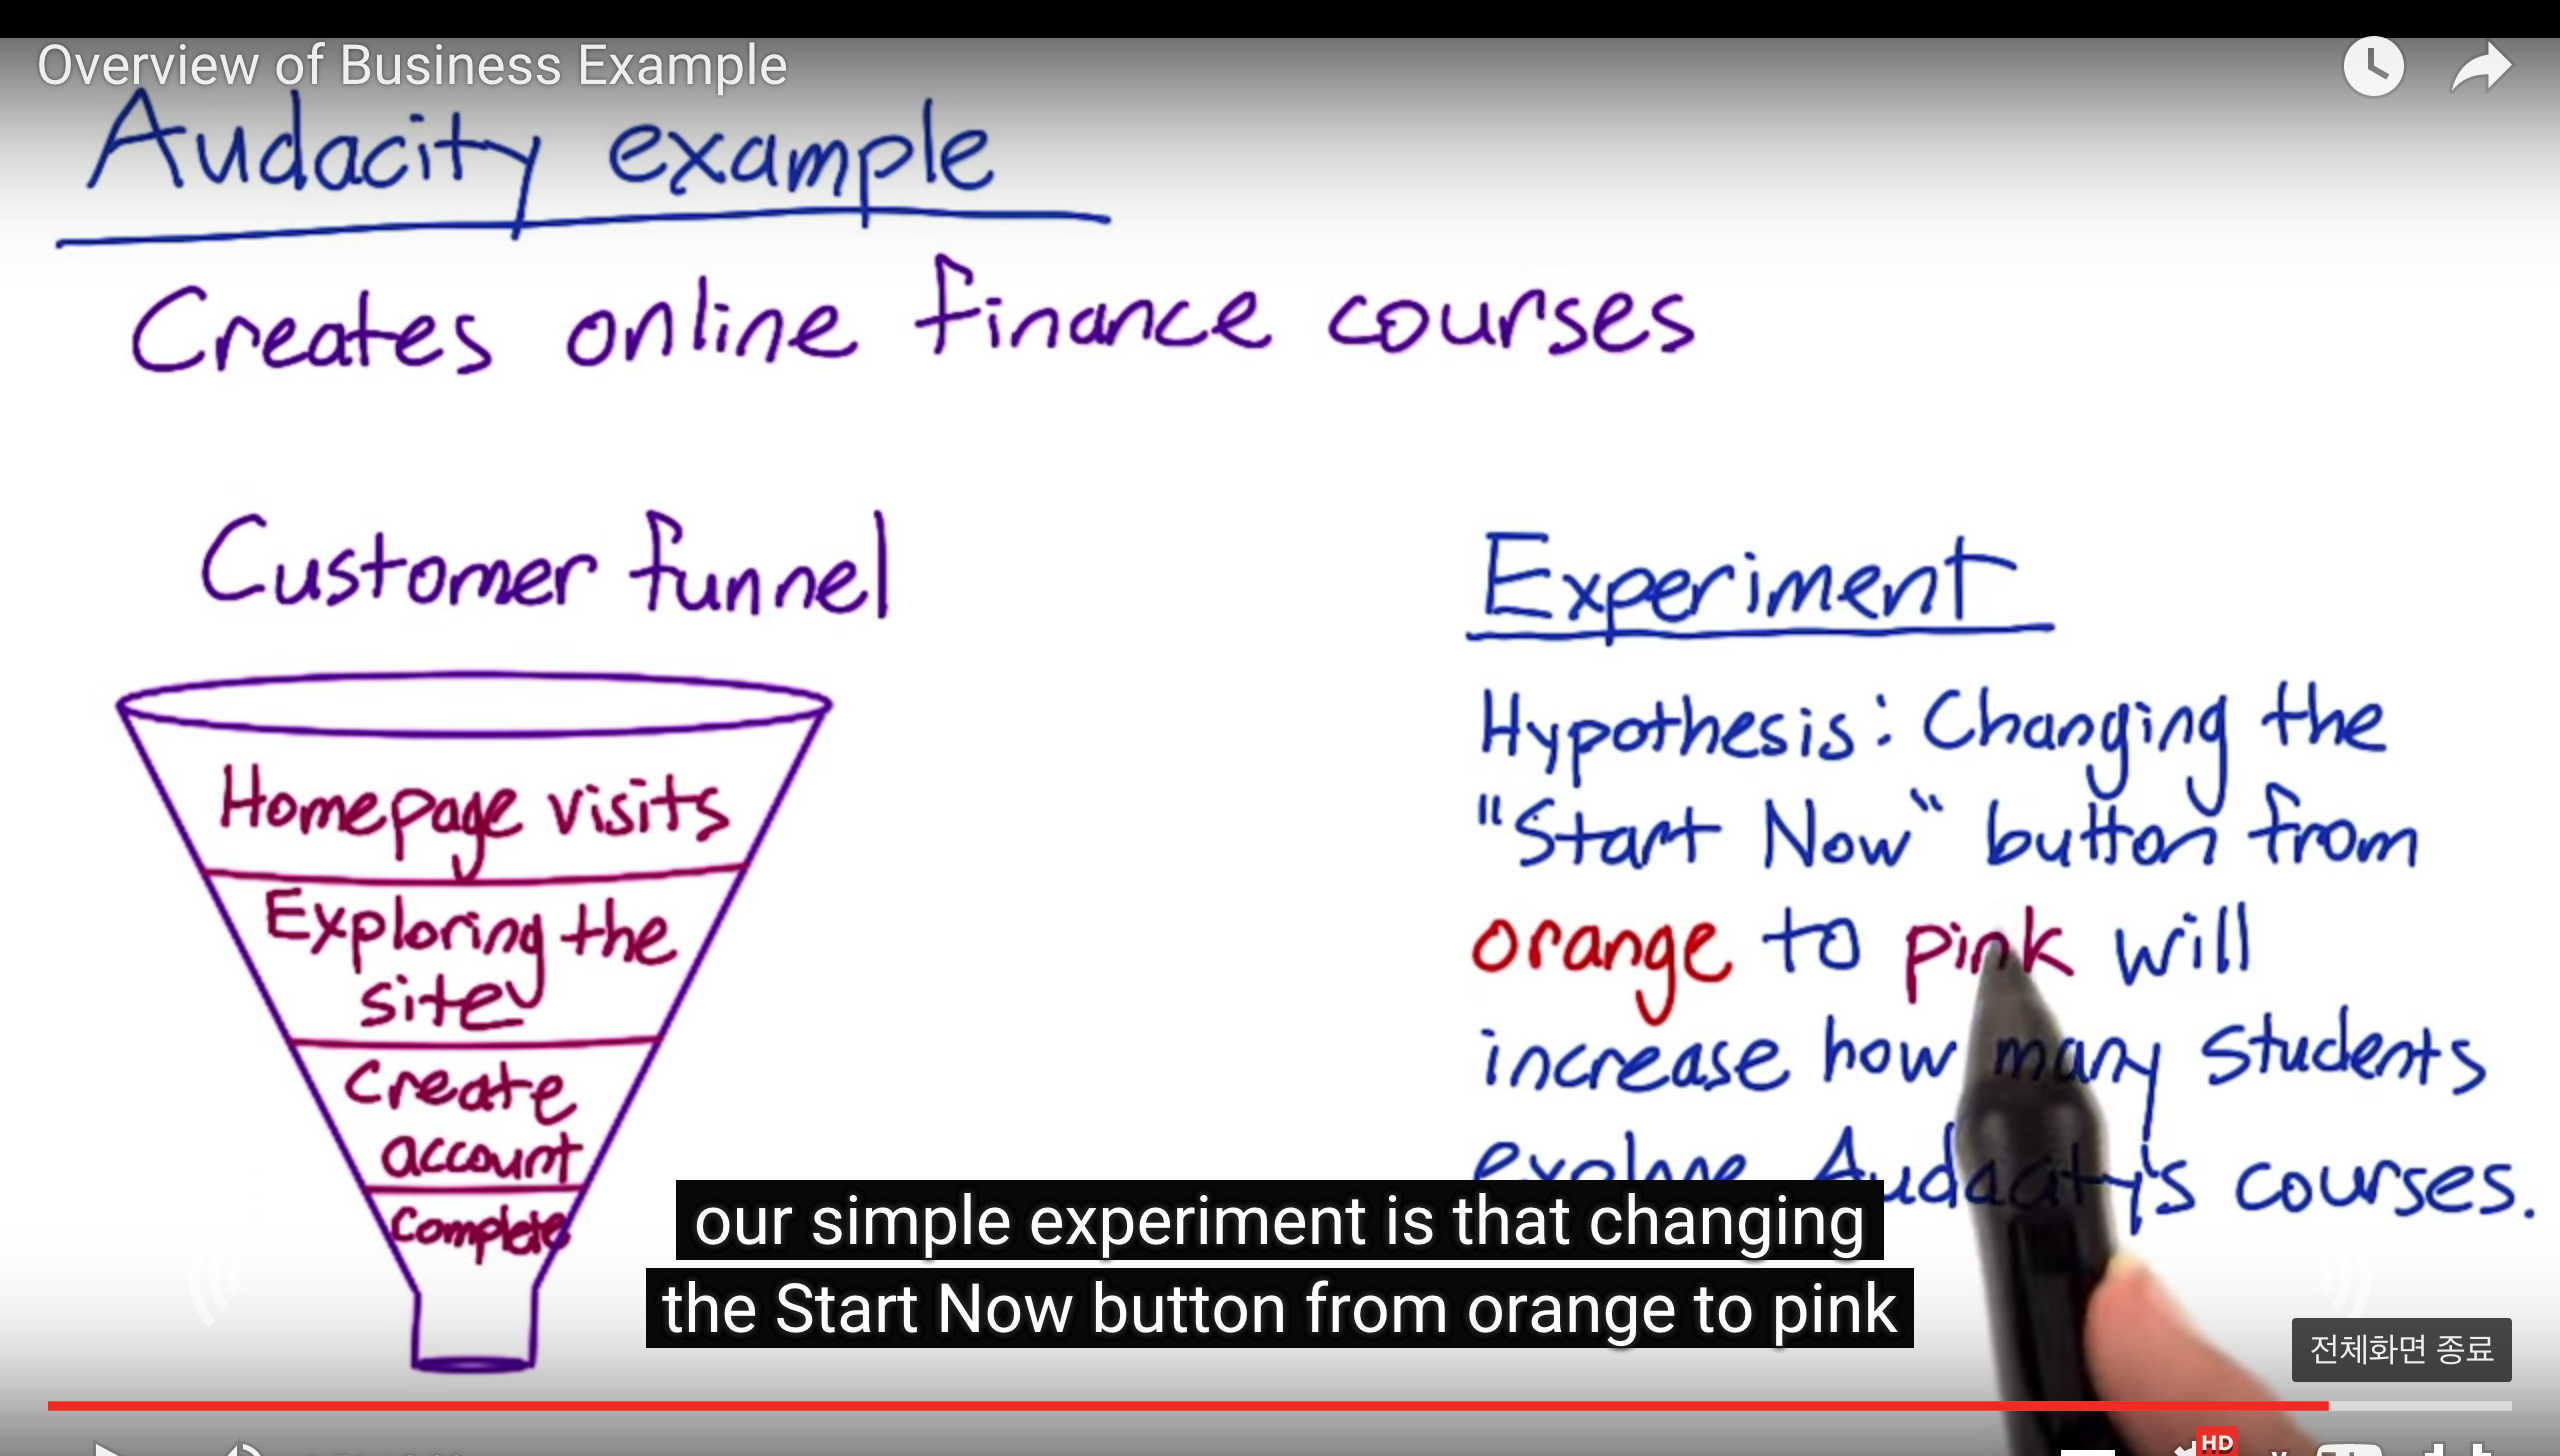 Overview of Business Example
Audacity example
Creates online finance courses
Customer funnel
Homepage visits
Exploring the
site
Create
account
Complete
Experiment
Hypothesis: Changing the
"Start Now" button from
orange to pink will
increase how many students
explore Audacity's courses.
our simple experiment is that changing
the Start Now button from orange to pink
전체화면 종료
HD